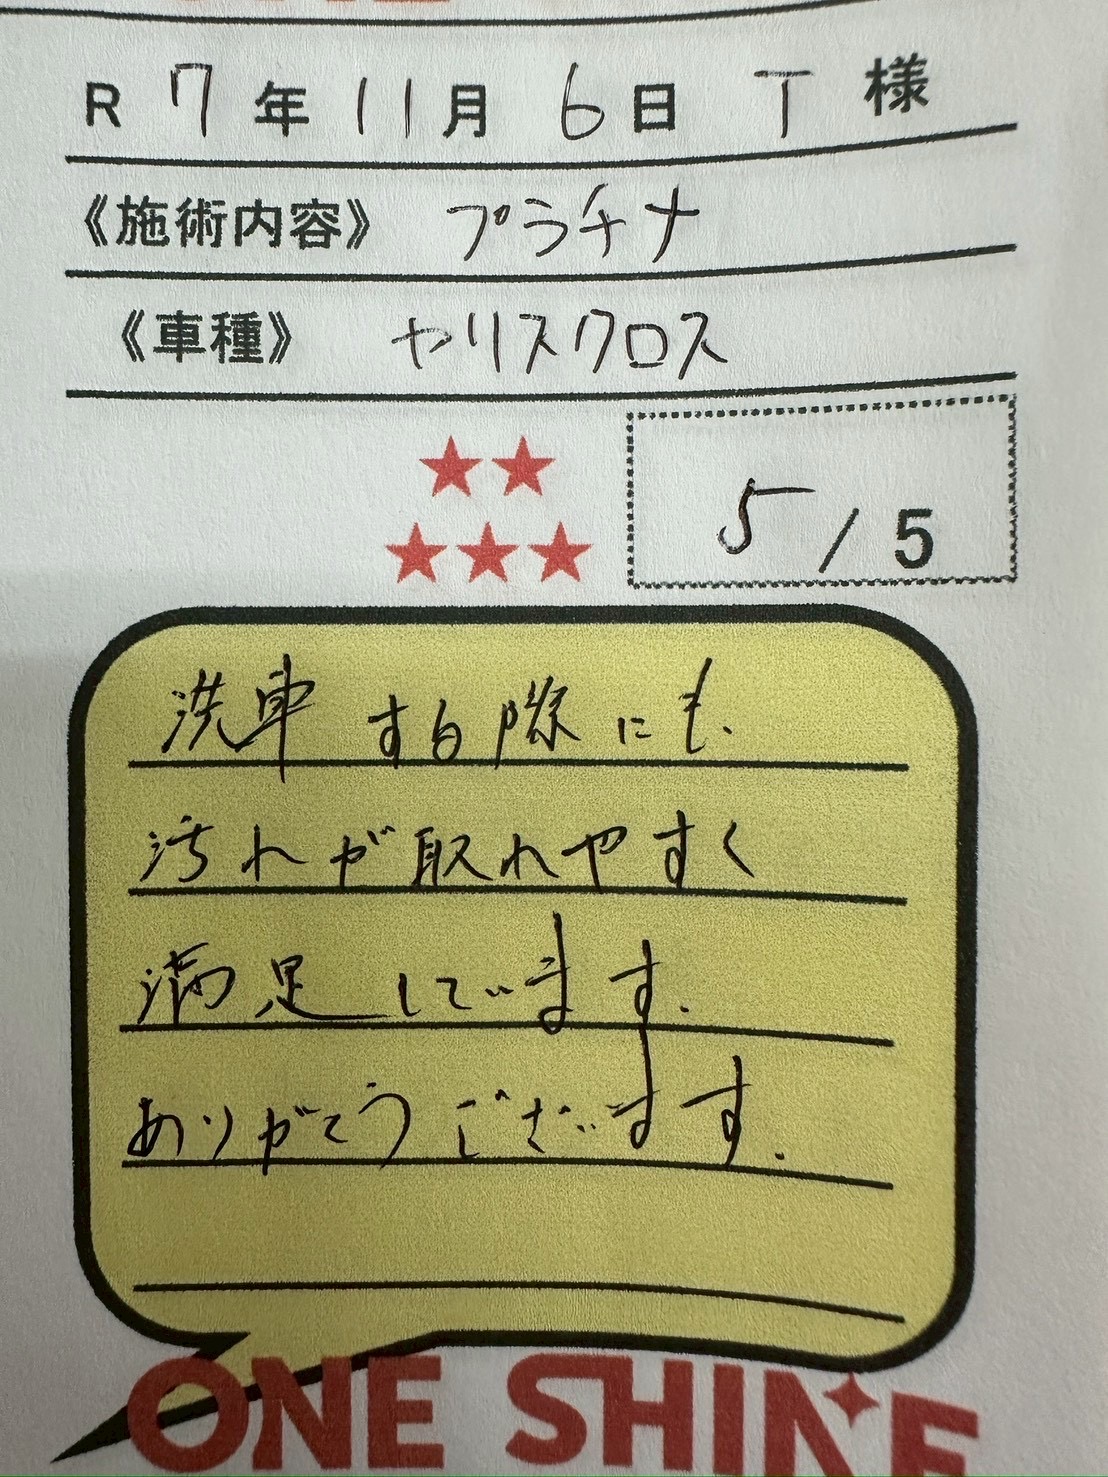 R 7年 11月 6日 T 様
《施術内容》 プラチナ
《車種》 ヤリスクロス
5 / 5
洗車する際にも、
汚れが取れやすく
満足しています。
ありがとうございます。
ONE SHINE